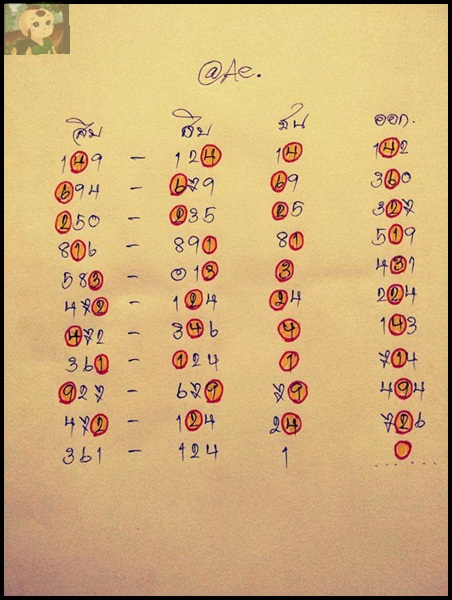 @Ae.
สิบ สิบ ชน ออก.
149 - 124 14 142
694 - 679 69 360
250 - 235 25 327
816 - 891 81 519
583 - 013 3 431
472 - 124 24 224
472 - 346 4 143
361 - 124 1 714
927 - 679 79 494
472 - 124 24 726
361 - 124 1 ......